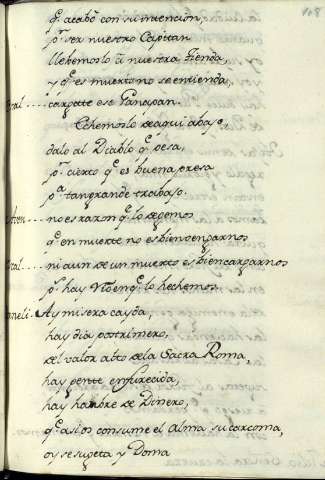 q.e acabò con su intencion,
p.r ser nuestro Capitan
llebemoslo à nuestra tienda,
y q.e es muerto no se entienda,
cargate ese Ganapan.
Echemoslo de aqui abajo,
dalo al Diablo q.e pesa,
p.r cierto q.e es buena presa
p.a tan grande trabajo.
no es razon q.e lo degemos
q.e en muerte no es bien
ni aun de un muerto es bien cargarnos
p.r hay lo hechemos.
Ay misera cayda,
hay dia postrimero,
del valor alto de la Sacra Roma,
hay gente enfurecida,
hay hambre de Dinero,
q.e asi os consume el alma su carcoma,
oy se sugeta y Doma